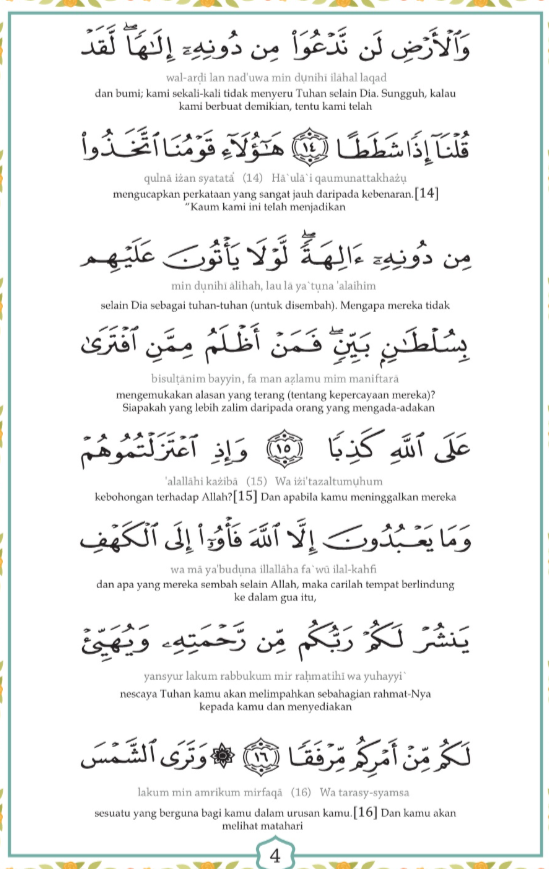 وَالْأَرْضِ لَن نَّدْعُوَاْ مِن دُونِهِۦٓ إِلَـٰهًا ۖ لَّقَدْ
wal-arḍi lan nad'uwa min dụnihī ilāhal laqad
dan bumi; kami sekali-kali tidak menyeru Tuhan selain Dia. Sungguh, kalau
kami berbuat demikian, tentu kami telah
قُلْنَآ إِذًا شَطَطًا ﴿١٤﴾ هَـٰٓؤُلَآءِ قَوْمُنَا ٱتَّخَذُواْ
qulnā iżan syataṭā (14) Hā`ulā`i qaumunattakhażụ
mengucapkan perkataan yang sangat jauh daripada kebenaran.[14]
“Kaum kami ini telah menjadikan
مِن دُونِهِۦٓ ءَالِهَةً ۖ لَّوْلَا يَأْتُونَ عَلَيْهِم
min dụnihī ālihah, lau lā ya`tụna 'alaihim
selain Dia sebagai tuhan-tuhan (untuk disembah). Mengapa mereka tidak
بِسُلْطَـٰنِۭ بَيِّنٍ ۖ فَمَنْ أَظْلَمُ مِمَّنِ ٱفْتَرَىٰ
bisulṭānim bayyin, fa man aẓlamu mim maniftarā
mengemukakan alasan yang terang (tentang kepercayaan mereka)?
Siapakah yang lebih zalim daripada orang yang mengada-adakan
عَلَى ٱللَّهِ كَذِبًا ﴿١٥﴾ وَإِذِ ٱعْتَزَلْتُمُوهُمْ
'alallāhi każibā (15) Wa iżi'tazaltumụhum
kebohongan terhadap Allah?[15] Dan apabila kamu meninggalkan mereka
وَمَا يَعْبُدُونَ إِلَّا ٱللَّهَ فَأْوُۥٓاْ إِلَى ٱلْكَهْفِ
wa mā ya'budụna illallāha fa`wū ilal-kahfi
dan apa yang mereka sembah selain Allah, maka carilah tempat berlindung
ke dalam gua itu,
يَنشُرْ لَكُمْ رَبُّكُم مِّن رَّحْمَتِهِۦ وَيُهَيِّئْ
yansyur lakum rabbukum mir raḥmatihī wa yuhayyi`
nescaya Tuhan kamu akan melimpahkan sebahagian rahmat-Nya
kepada kamu dan menyediakan
لَكُم مِّنْ أَمْرِكُم مِّرْفَقًا ﴿١٦﴾ ۞ وَتَرَى ٱلشَّمْسَ
lakum min amrikum mirfaqā (16) Wa tarasy-syamsa
sesuatu yang berguna bagi kamu dalam urusan kamu.[16] Dan kamu akan
melihat matahari
4